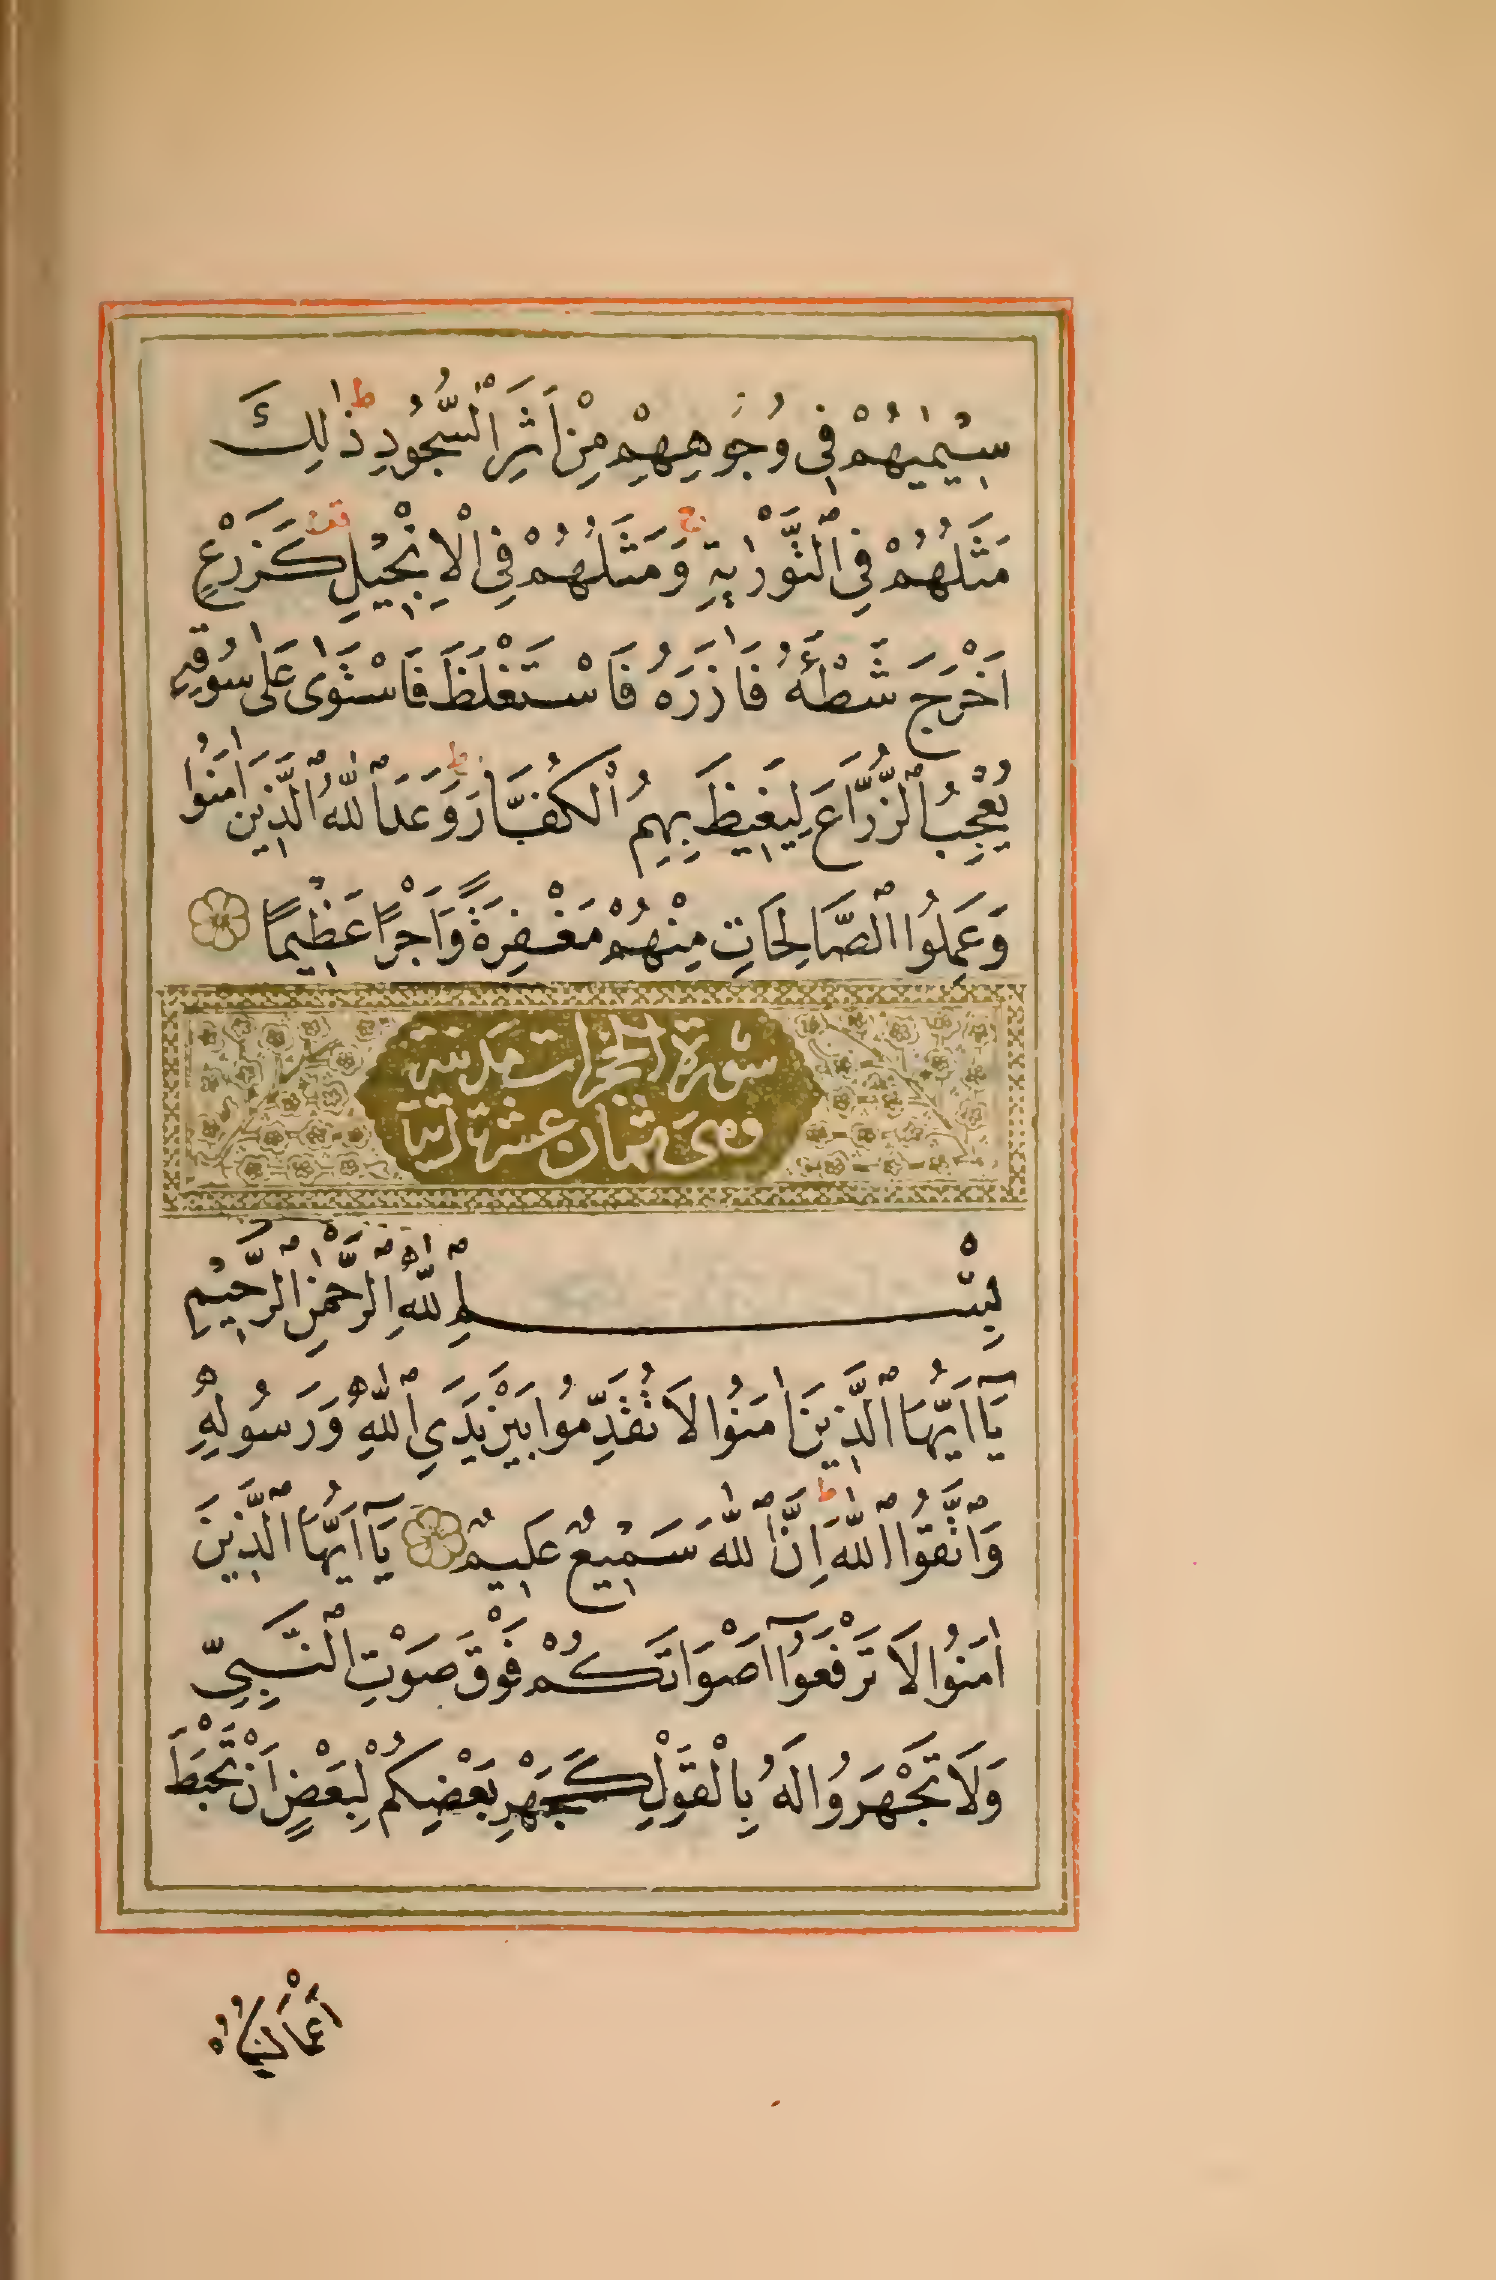 سِيْمٰيهُمْ فِي وُجُوهِهِمْ مِنْ اَثَرِ السُّجُودِ ط ذٰلِكَ
مَثَلُهُمْ فِي التَّوْرٰيةِ ج وَمَثَلُهُمْ فِي الْاِنْجِيْلِ قف كَزَرْعٍ
اَخْرَجَ شَطْأَهُ فَاٰزَرَهُ فَاسْتَغْلَظَ فَاسْتَوٰى عَلٰى سُوقِهِ
يُعْجِبُ الزُّرَّاعَ لِيَغِيظَ بِهِمُ الْكُفَّارَ ط وَعَدَ اللّٰهُ الَّذِينَ اٰمَنُوا
وَعَمِلُوا الصَّالِحَاتِ مِنْهُمْ مَغْفِرَةً وَاَجْرًا عَظِيمًا
سورة الحجرات مدنية
وهي ثمان عشرة اية
بِسْمِ اللّٰهِ الرَّحْمٰنِ الرَّحِيْمِ
يَآ اَيُّهَا الَّذِينَ اٰمَنُوا لَا تُقَدِّمُوا بَيْنَ يَدَيِ اللّٰهِ وَرَسُولِهِ
وَاتَّقُوا اللّٰهَ ط اِنَّ اللّٰهَ سَمِيعٌ عَلِيمٌ يَآ اَيُّهَا الَّذِينَ
اٰمَنُوا لَا تَرْفَعُوآ اَصْوَاتَكُمْ فَوْقَ صَوْتِ النَّبِيِّ
وَلَا تَجْهَرُوا لَهُ بِالْقَوْلِ كَجَهْرِ بَعْضِكُمْ لِبَعْضٍ اَنْ تَحْبَطَ
اَعْمَالُكُمْ